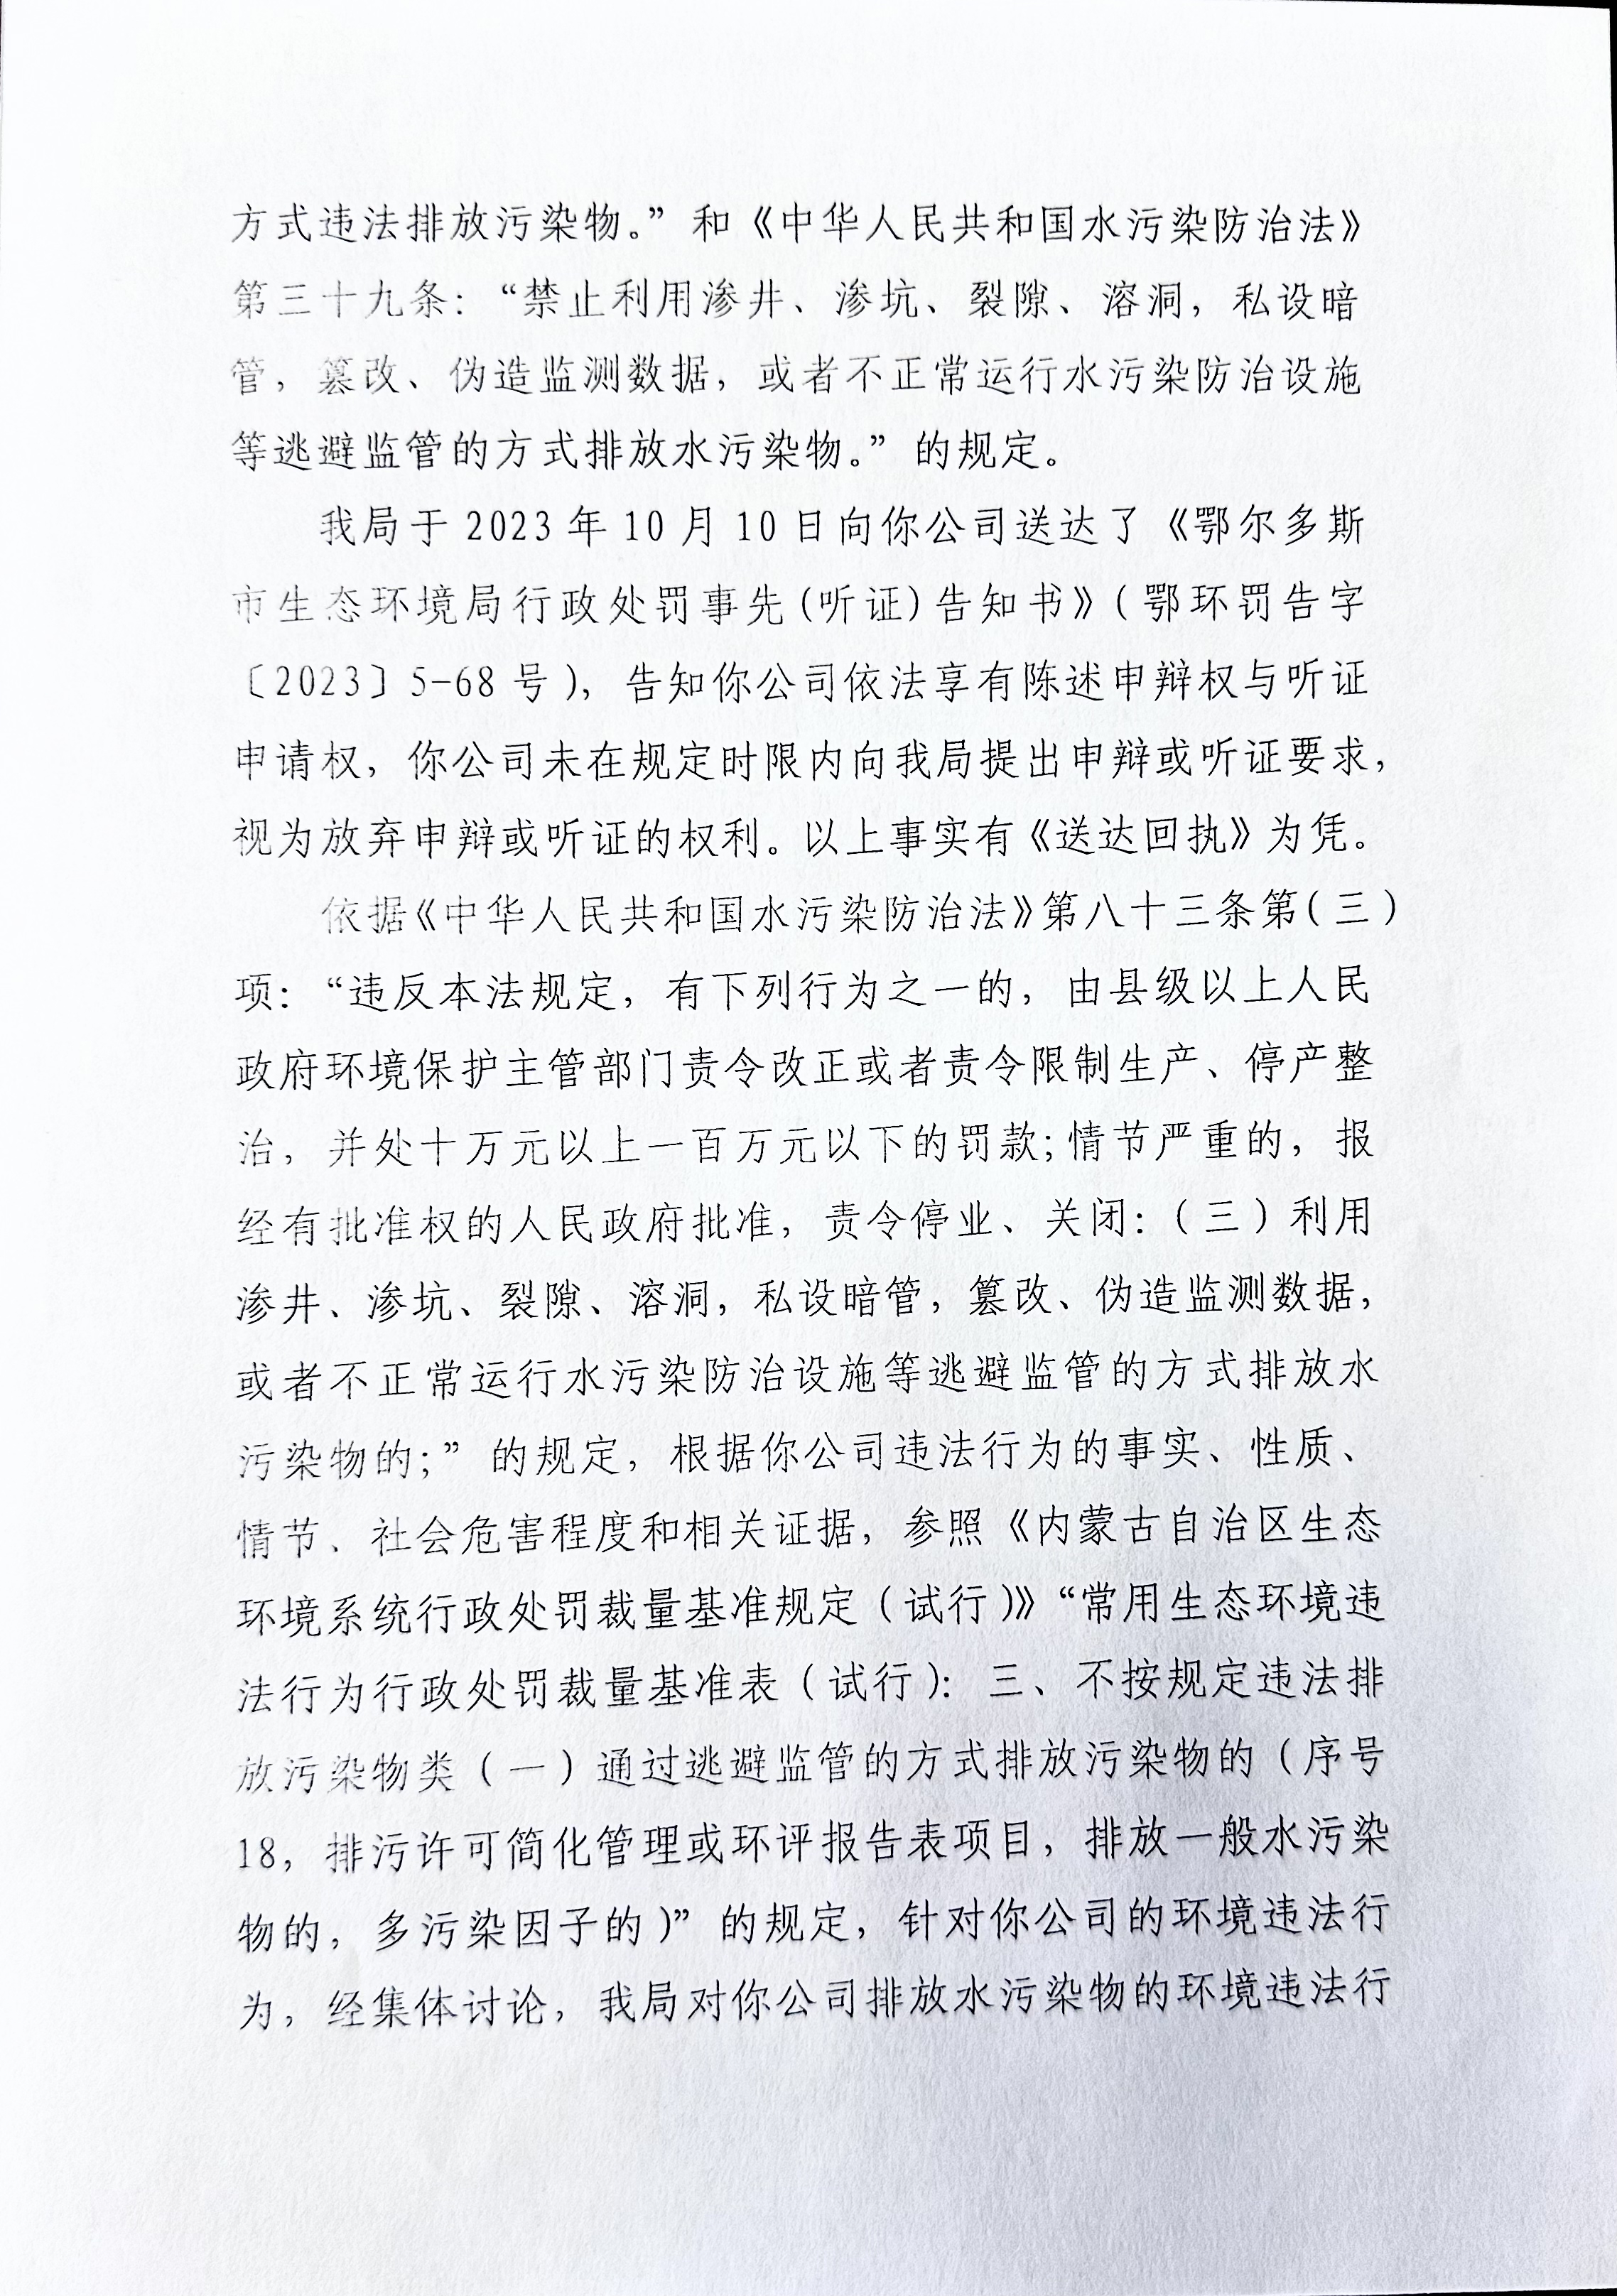 方式违法排放污染物。”和《中华人民共和国水污染防治法》
第三十九条：“禁止利用渗井、渗坑、裂隙、溶洞，私设暗
管，篡改、伪造监测数据，或者不正常运行水污染防治设施
等逃避监管的方式排放水污染物。”的规定。
我局于 2023 年 10 月 10 日向你公司送达了《鄂尔多斯
市生态环境局行政处罚事先(听证)告知书》(鄂环罚告字
〔2023〕5-68 号)，告知你公司依法享有陈述申辩权与听证
申请权，你公司未在规定时限内向我局提出申辩或听证要求，
视为放弃申辩或听证的权利。以上事实有《送达回执》为凭。
依据《中华人民共和国水污染防治法》第八十三条第(三)
项：“违反本法规定，有下列行为之一的，由县级以上人民
政府环境保护主管部门责令改正或者责令限制生产、停产整
治，并处十万元以上一百万元以下的罚款；情节严重的，报
经有批准权的人民政府批准，责令停业、关闭：(三)利用
渗井、渗坑、裂隙、溶洞，私设暗管，篡改、伪造监测数据，
或者不正常运行水污染防治设施等逃避监管的方式排放水
污染物的；”的规定，根据你公司违法行为的事实、性质、
情节、社会危害程度和相关证据，参照《内蒙古自治区生态
环境系统行政处罚裁量基准规定(试行)》“常用生态环境违
法行为行政处罚裁量基准表(试行)：三、不按规定违法排
放污染物类(一)通过逃避监管的方式排放污染物的(序号
18，排污许可简化管理或环评报告表项目，排放一般水污染
物的，多污染因子的)”的规定，针对你公司的环境违法行
为，经集体讨论，我局对你公司排放水污染物的环境违法行